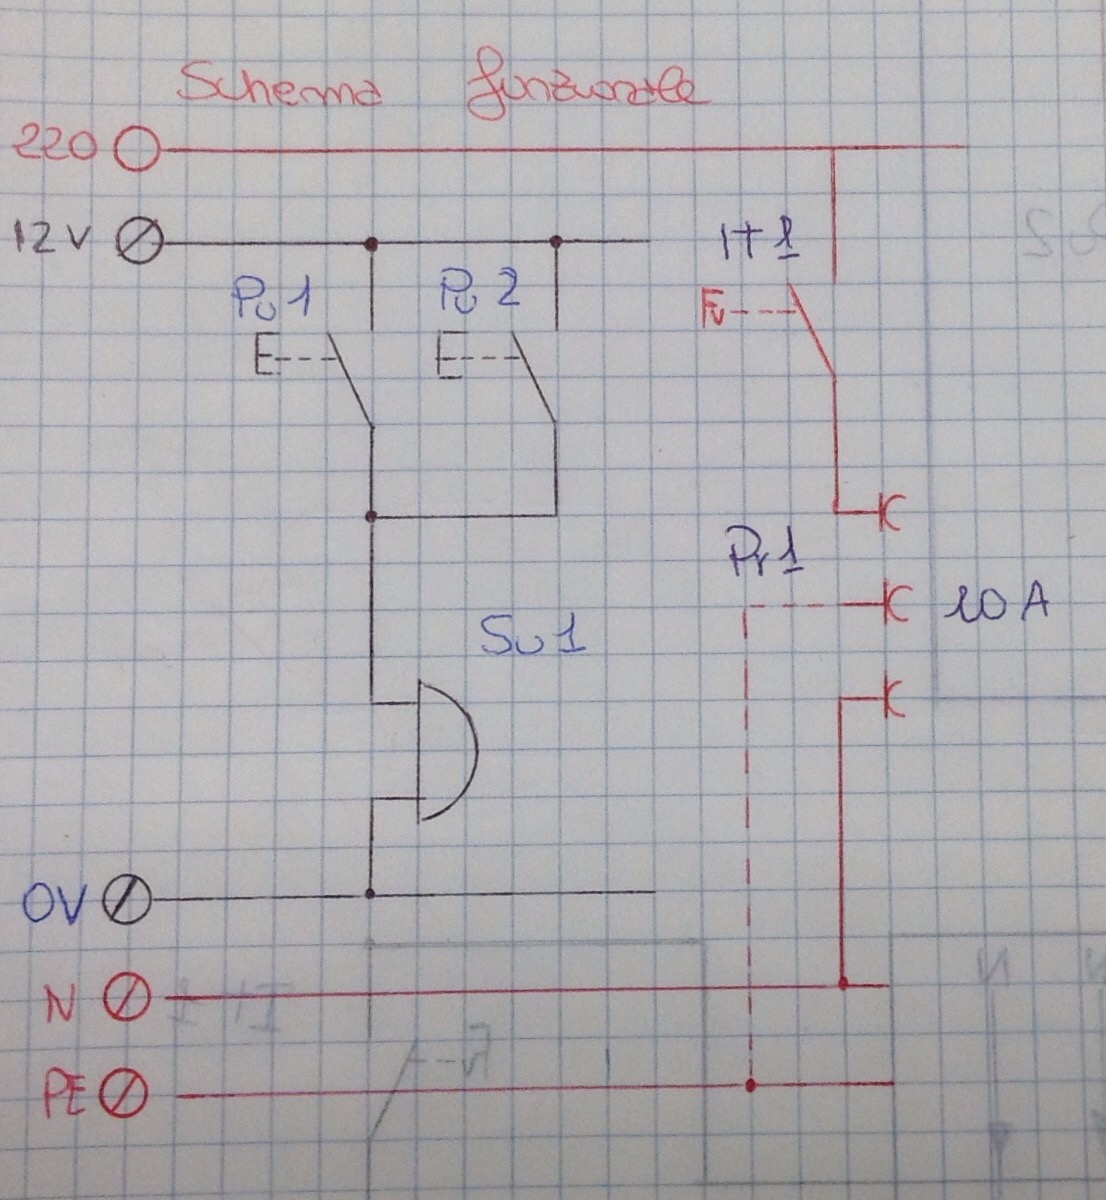 Schema funzionale
220
12V
Pu1
Pu2
IT1
Pr1
10A
Su1
0V
N
PE